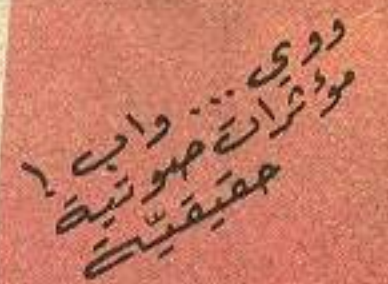 ووي... واب!
مؤثرات صوتية
حقيقيّة